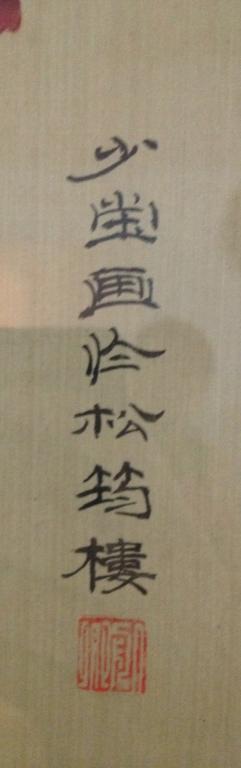 少崖画於松筠樓